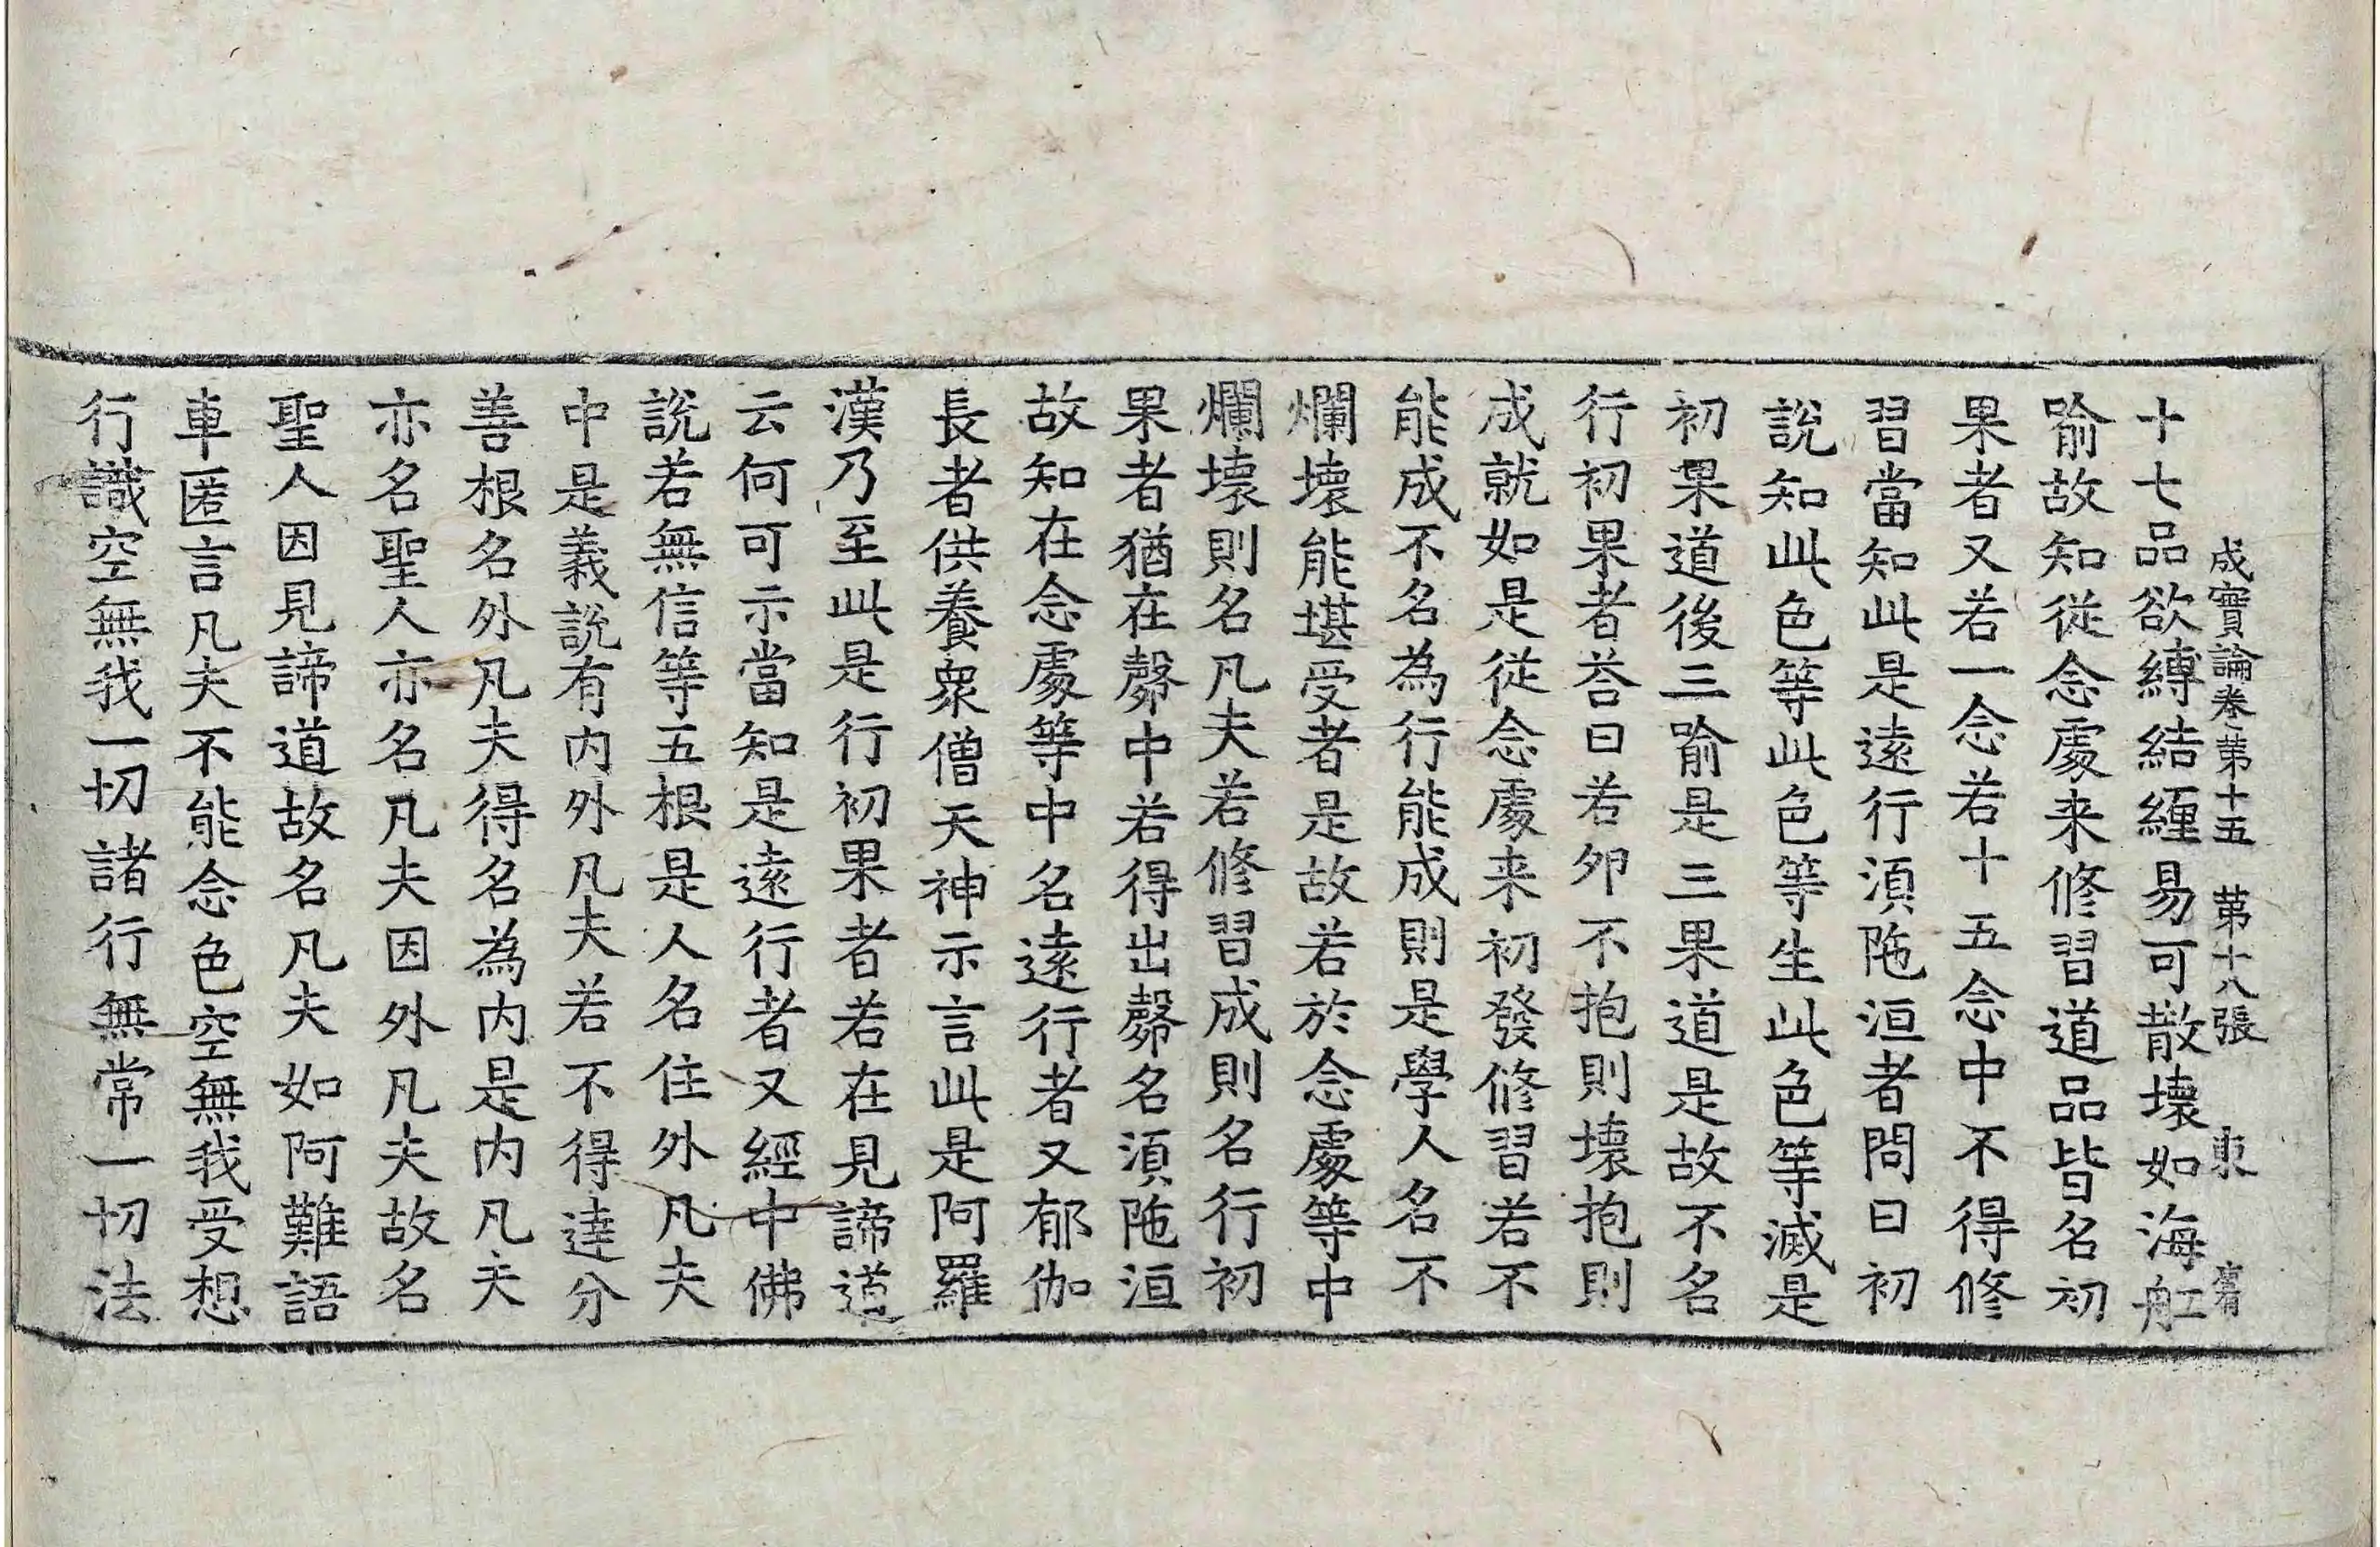 成實論卷第十五　第十八張　東
十七品欲縛結纏易可散壞如海舡
喻故知從念處来修習道品皆名初
果者又若一念若十五念中不得修
習當知此是遠行湏陁洹者問曰初
說知此色等此色等生此色等滅是
初果道後三喻是三果道是故不名
行初果者荅曰若夘不抱則壞抱則
成就如是從念處来初發修習若不
能成不名為行能成則是學人名不
爛壞能堪受者是故若於念處等中
爛壞則名凡夫若修習成則名行初
果者猶在㲉中若得出㲉名湏陁洹
故知在念處等中名遠行者又郁伽
長者供養衆僧天神示言此是阿羅
漢乃至此是行初果者若在見諦道
云何可示當知是遠行者又經中佛
說若無信等五根是人名住外凡夫
中是義說有内外凡夫若不得達分
善根名外凡夫得名為内是内凡夫
亦名聖人亦名凡夫因外凡夫故名
聖人因見諦道故名凡夫如阿難語
車匿言凡夫不能念色空無我受想
行識空無我一切諸行無常一切法